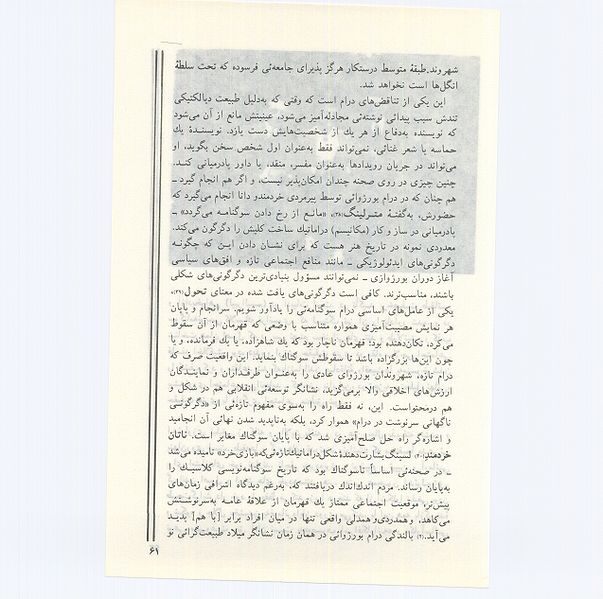 شهروند.طبقهٔ متوسط درستکار هرگز پذیرای جامعه‌ئی فرسوده که تحت سلطهٔ
انگل‌ها است نخواهد شد.
این یکی از تناقض‌های درام است که وقتی که به‌دلیل طبیعت دیالکتیکی
تندش سبب پیدائی نوشته‌ئی مجادله‌آمیز می‌شود، عینیتش مانع از آن می‌شود
که نویسنده به‌دفاع از هر یك از شخصیت‌هایش دست یازد. نویسندهٔ یك
حماسه یا شعر غنائی، نمی‌تواند فقط به‌عنوان اول شخص سخن بگوید، او
می‌تواند در جریان رویدادها به‌عنوان مفسر، منقد، یا داور پادرمیانی کند.
چنین چیزی در روی صحنه چندان امکان‌پذیر نیست، و اگر هم انجام گیرد ــ
هم چنان که در درام بورژوائی توسط پیرمردی خردمند و دانا انجام می‌گیرد که
حضورش، به‌گفتهٔ «مانع از رخ دادن سوگنامه می‌گردد» ــ
پادرمیانی در ساز و کار (مکانیسم) دراماتیك ساخت کلیش را دگرگون می‌کند.
معدودی نمونه در تاریخ هنر هست که برای نشان دادن این که چگونه
دگرگونی‌های ایدئولوژیکی ــ مانند منافع اجتماعی تازه و افق‌های سیاسی
آغاز دوران بورژوازی ــ نمی‌توانند مسؤول بنیادی‌ترین دگرگونی‌های شکلی
باشند، مناسب‌ترند. کافی است دگرگونی‌های یافت شده در معنای تحول(۳۹)،
یکی از عامل‌های اساسی درام سوگنامه‌ئی را یادآور شویم. سرانجام و پایان
هر نمایش مصیبت‌آمیزی همواره متناسب با وضعی که قهرمان از آن سقوط
می‌کرد، تکان‌دهنده بود؛ قهرمان ناچار بود که یك شاهزاده، یا یك فرمانده، و یا
چون این‌ها بزرگزاده باشد تا سقوطش سوگناك بنماید. این واقعیت صرف که
درام تازه، شهروندان بورژوای عادی را به‌عنوان طرفداران و نمایندگان
ارزش‌های اخلاقی والا برمی‌گزید، نشانگر توسعه‌ئی انقلابی هم در شکل و
هم درمحتواست. این، نه فقط راه را به‌سوی مفهوم تازه‌ئی از «دگرگونی
ناگهانی سرنوشت در درام» هموار کرد، بلکه به‌ناپدید شدن نهائی آن انجامید
و اشاره‌گر راه حل صلح‌آمیزی شد که با پایان سوگناك مغایر است. ناتان
خردمند، لسینگ بشارت‌دهندهٔ شکل دراماتیك تازه‌ئی که «بازی خرد» نامیده می‌شد
ــ در صحنه‌ئی اساساً ناسوگناك بود که تاریخ سوگنامه‌نویسی کلاسیك را
به‌پایان رساند. مردم اندك‌اندك دریافتند که، به‌رغم دیدگاه اشرافی زمان‌های
پیش‌تر، موقعیت اجتماعی ممتاز یك قهرمان از علاقهٔ عامه به‌سرنوشتش
می‌کاهد، و همدردی و همدلی واقعی تنها در میان افراد برابر [با هم] پدید
می‌آید. بالندگی درام بورژوائی در همان زمان نشانگر میلاد طبیعت‌گرائی نو
۶۱